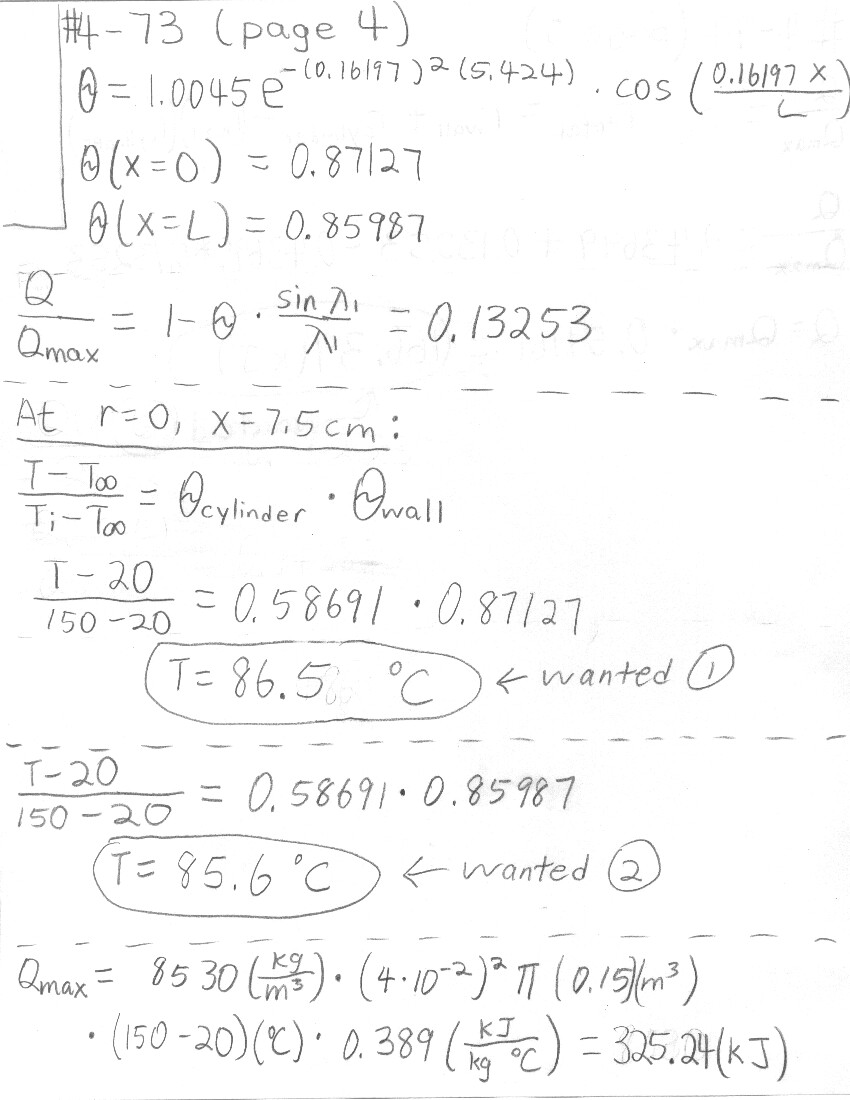 #4-73 (page 4)
θ = 1.0045 e^{-(0.16197)^2 (5.424)} · cos (0.16197 x / L)
θ(x=0) = 0.87127
θ(x=L) = 0.85987
Q / Qmax = 1 - θ · sin λ₁ / λ₁ = 0.13253
At r=0, x=7.5cm:
T - T∞ / Ti - T∞ = θcylinder · θwall
T - 20 / 150 - 20 = 0.58691 · 0.87127
T = 86.5 °C ← wanted ①
T - 20 / 150 - 20 = 0.58691 · 0.85987
T = 85.6 °C ← wanted ②
Qmax = 8530 (kg / m³) · (4·10⁻²)² π (0.15)(m³)
· (150 - 20)(°C) · 0.389 (kJ / kg °C) = 325.24 (kJ)